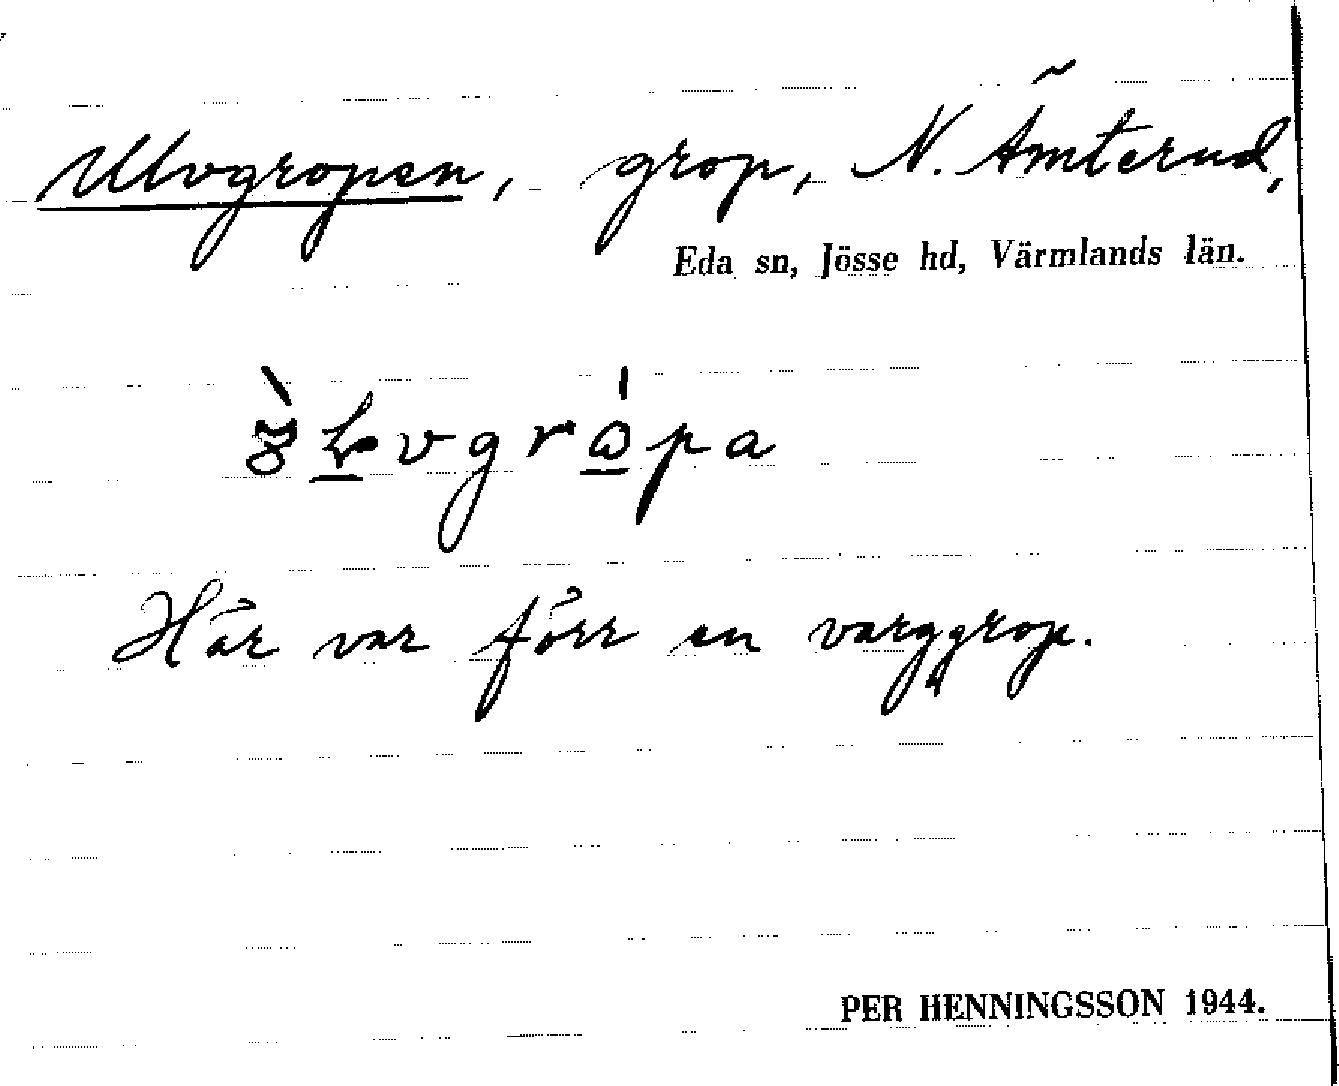 Ulvgropen, grop, N. Ämterud,
Eda sn, Jösse hd, Värmlands län.
Här var förr en varggrop.
PER HENNINGSSON 1944.